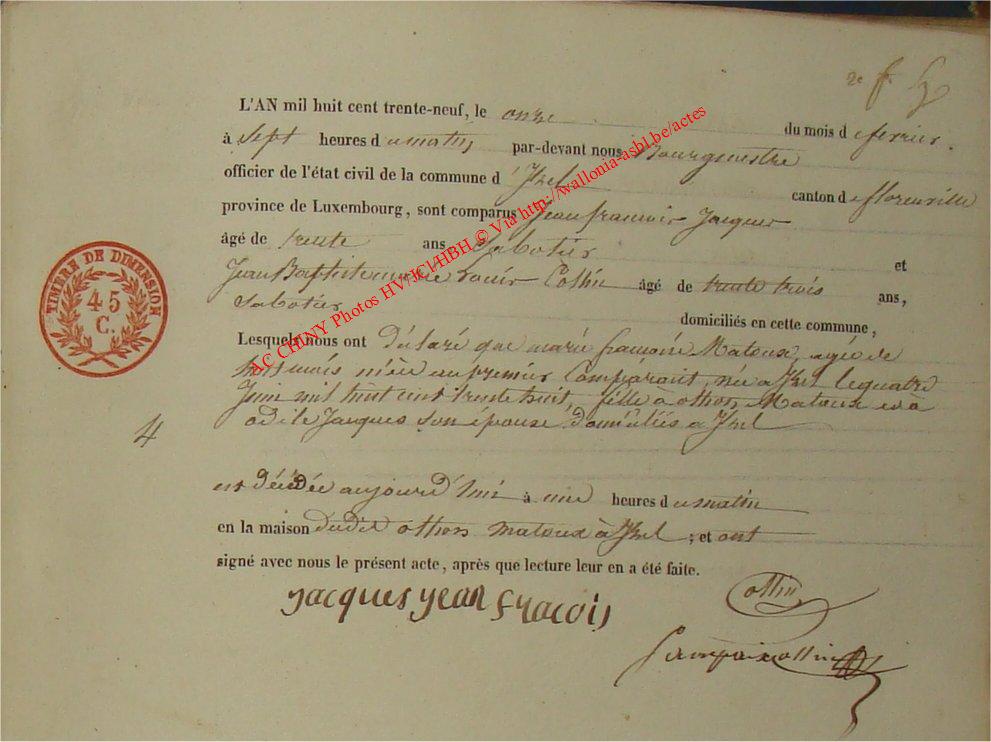 2e f.
L'AN mil huit cent trente-neuf, le onze du mois de fevrier.
à sept heures du matin par-devant nous Bourgmestre
officier de l'état civil de la commune d'Izel canton de florenville
province de Luxembourg, sont comparus jean francois Jacques
âgé de trente ans Sabotier et
Jean Baptiste Collin âgé de trente trois ans,
Sabotier domiciliés en cette commune,
Lesquels nous ont déclaré que marie francoise Matoux, agée de
huit mois nièce au premier Comparant, née a Izel le quatre
Juin mil huit cent trente huit, fille a othon Matoux et à
odile Jacques son épouse domiciliés a Izel
4
est décédée aujourd'hui à une heures du matin
en la maison dudit othon matoux à Izel ; et ont
signé avec nous le présent acte, après que lecture leur en a été faite.
jacques jean fracois
Collin
TIMBRE DE DIMENSION
45
C.
AC CHINY Photos HV/JCl/HBH © Via http://wallonia-asbl.be/actes